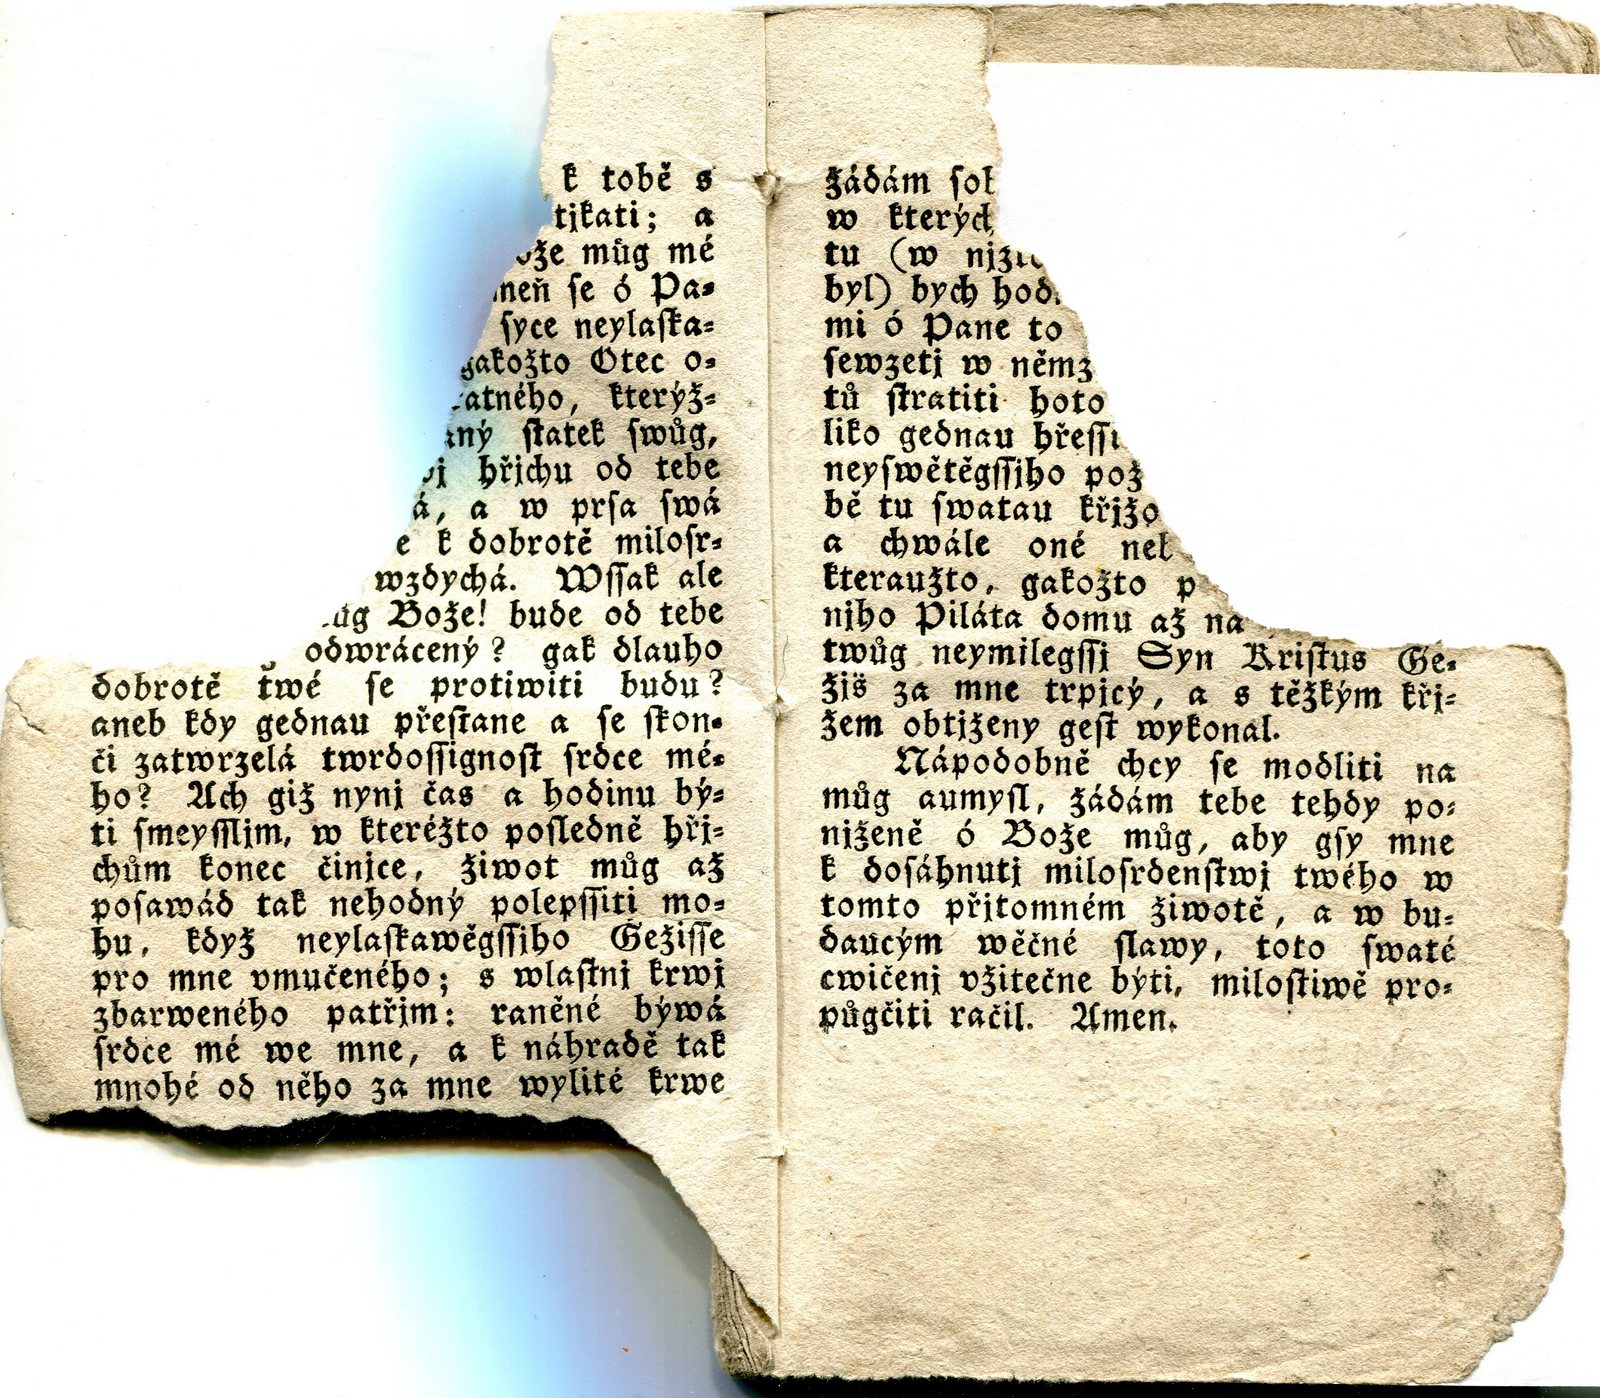 k tobě s
tjkati; a
ože můg mé
meň se ó Pa-
syce neylaſka-
gakožto Otec o-
ratného, kterýž-
aný ſtatek ſwůg,
hřjchu od tebe
á, a w prſa ſwá
e k dobrotě miloſr-
wzdychá. Wſſak ale
můg Bože! bude od tebe
odwrácený? gak dlauho
dobrotě twé ſe protiwiti budu?
aneb kdy gednau přeſtane a ſe ſkon-
či zatwrzelá twrdoſſignoſt ſrdce mé-
ho? Ach giž nynj čas a hodinu bý-
ti ſmeyſſlim, w kteréžto poſledně hřj-
chům konec činjce, žiwot můg až
poſawád tak nehodný polepſſiti mo-
hu, když neylaſkawěgſſjho Gežiſſe
pro mne vmučeného; s wlaſtnj krwj
zbarweného patřjm: raněné býwá
ſrdce mé we mne, a k náhradě tak
mnohé od něho za mne wylité krwe
žádám
w kterých
tu (w
byl) bych
mi ó Pane to
ſewzetj w němz
tů ſtratiti hoto
liko gednau
neyſwětěgſſjho pož
bě tu ſwatau křjžo
a chwále oné
kteraužto, gakožto p
njho Piláta domu až na
twůg neymilegſſj Syn Kriſtus Ge-
žjš za mne trpjcý, a s těžkým křj-
žem obtjženy geſt wykonal.
Nápodobně chcy ſe modliti na
můg aumyſl, žádám tebe tehdy po-
njženě ó Bože můg, aby gſy mne
k doſáhnutj miloſrdenſtwj twého w
tomto přjtomném žiwotě, a w bu-
daucým wěčné ſlawy, toto ſwaté
cwičenj vžitečne býti, miloſtiwě pro-
půgčiti račil. Amen.